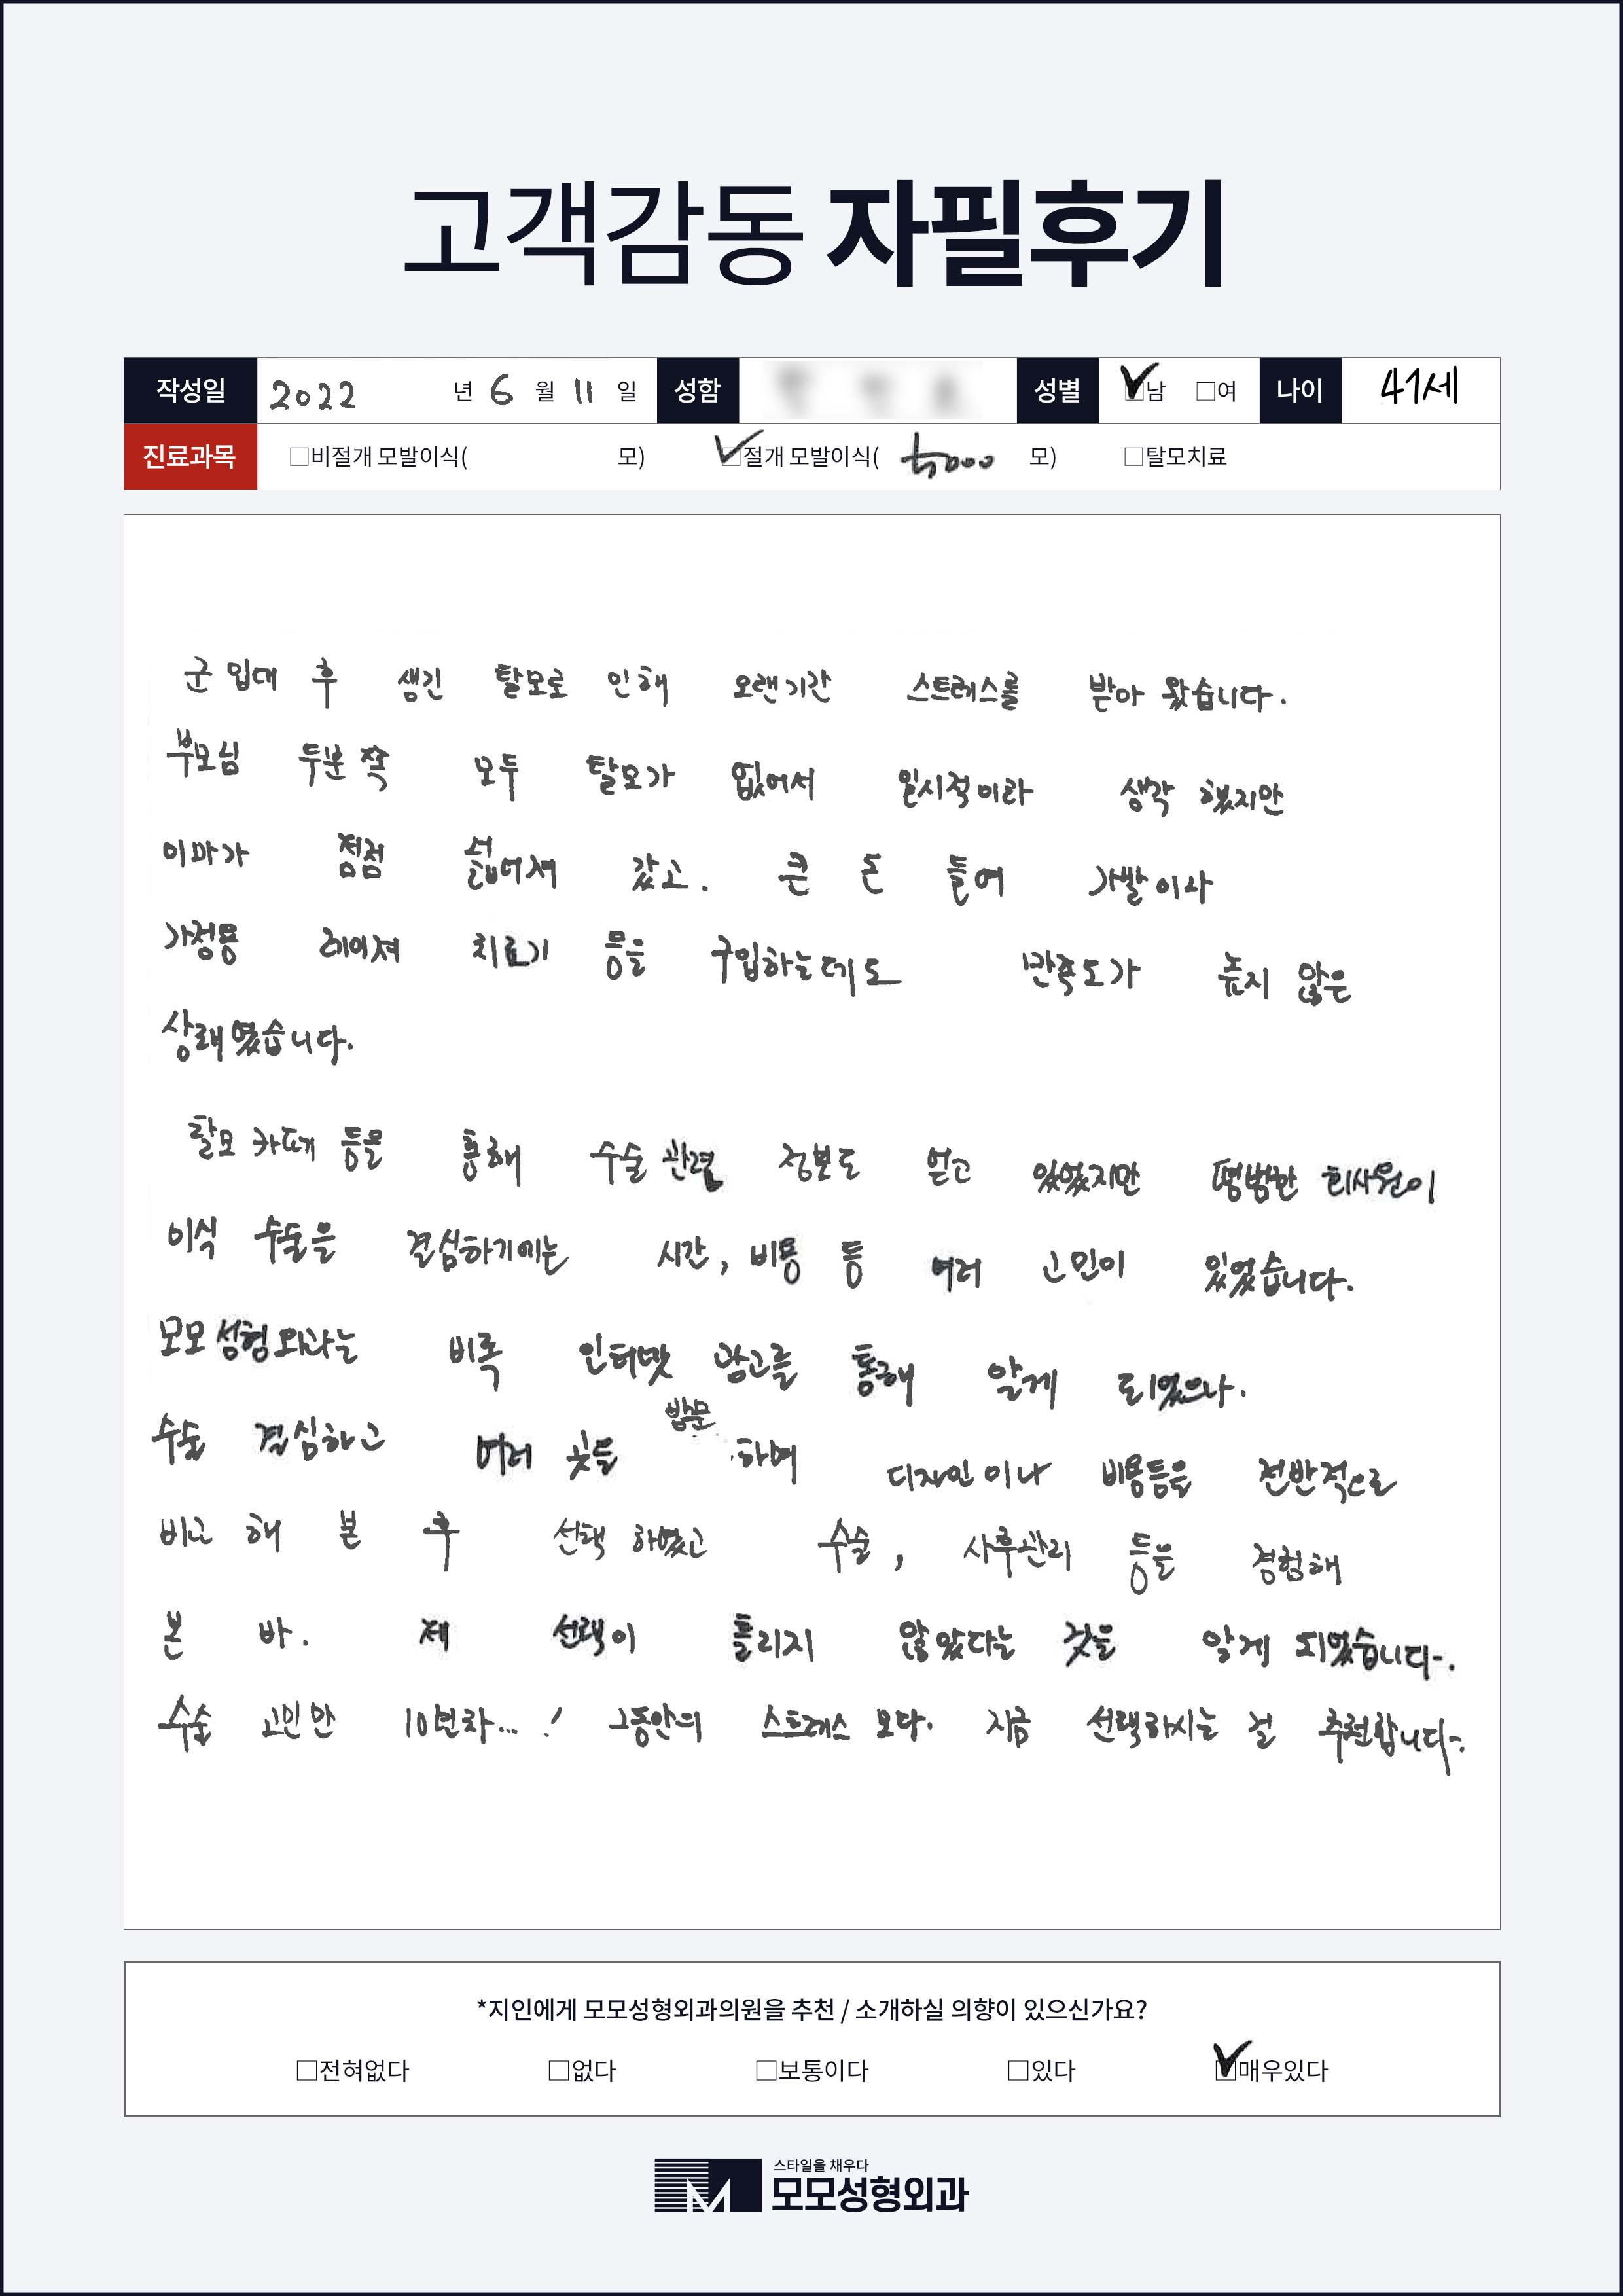 고객감동 자필후기
작성일 2022 년 6 월 11 일 성함 성별 ☑남 □여 나이 41세
진료과목 □비절개 모발이식( 모) ☑절개 모발이식( 5000 모) □탈모치료
군 입대 후 생긴 탈모로 인해 오랜기간 스트레스를 받아 왔습니다.
부모님 두분 쪽 모두 탈모가 없어서 일시적이라 생각 했지만
이마가 점점 넓어져 갔고. 큰 돈 들여 가발이나
가정용 레이져 치료기 등을 구입하는데도 만족도가 높지 않은
상태였습니다.
탈모 카페 등을 통해 수술 관련 정보도 얻고 있었지만 평범한 회사원이
이식 수술을 결심하기에는 시간, 비용 등 여러 고민이 있었습니다.
모모성형외과는 비록 인터넷 광고를 통해 알게 되었으나.
수술 결심하고 여러 곳을 방문 하며 디자인이나 비용등을 전반적으로
비교 해 본 후 선택 하였고 수술, 사후관리 등을 경험해
본 바. 제 선택이 틀리지 않았다는 것을 알게 되었습니다.
수술 고민만 10년차...! 그동안의 스트레스 보다. 지금 선택하시는 걸 추천합니다.
*지인에게 모모성형외과의원을 추천 / 소개하실 의향이 있으신가요?
□전혀없다 □없다 □보통이다 □있다 ☑매우있다
스타일을 채우다
모모성형외과